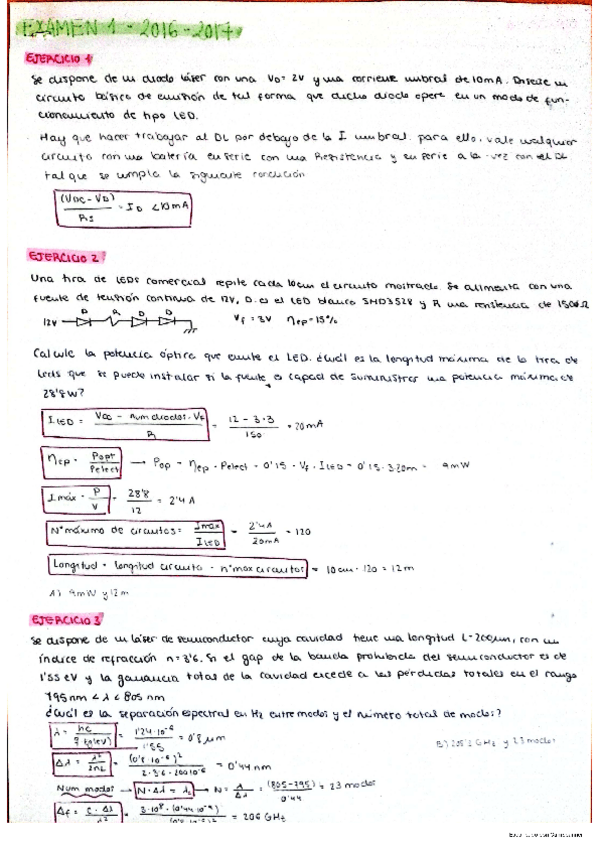 EXAMEN 1 - 2016-2017
EJERCICIO 1
Se dispone de un diodo láser con una V₀ = 2V y una corriente umbral de 10mA. Diseñe un
circuito básico de emisión de tal forma que dicho diodo opere en un modo de fun-
cionamiento de tipo LED.
Hay que hacer trabajar al DL por debajo de la I umbral. para ello, vale cualquier
circuito con una batería en serie con una Resistencia y en serie a la vez con el DL
tal que se cumpla la siguiente condición
(VDC - VD) / RS = ID < 10mA
EJERCICIO 2
Una tira de LEDs comercial repite cada 10cm el circuito mostrado. Se alimenta con una
fuente de tensión continua de 12V, D es el LED blanco SMD3528 y R una resistencia de 150Ω
D R D D
12V Vf = 3V ηep = 15%
Calcule la potencia óptica que emite el LED. ¿Cuál es la longitud máxima de la tira de
leds que se puede instalar si la fuente es capaz de suministrar una potencia máxima de
28'8W?
ILED = (VDC - num diodos · Vf) / R = (12 - 3·3) / 150 = 20mA
ηep = Popt / Pelect → Pop = ηep · Pelect = 0'15 · Vf · ILED = 0'15 · 3 20m = 9mW
Imáx = P / V = 28'8 / 12 = 2'4 A
Nº máximo de circuitos = Imáx / ILED = 2'4A / 20mA = 120
Longitud = longitud circuito · nº max circuitos = 10cm · 120 = 12m
A) 9mW y 12m
EJERCICIO 3
Se dispone de un láser de semiconductor cuya cavidad tiene una longitud L=200μm, con un
índice de refracción n=3'6. Si el gap de la banda prohibida del semiconductor es de
1'55 eV y la ganancia total de la cavidad excede a las pérdidas totales en el rango
795nm < λ < 805nm
¿Cuál es la separación espectral en Hz entre modos y el número total de modos?
λ = hc / = 1'24·10⁻⁶ / 1'55 = 0'8 μm
B) 205'2 GHz y 23 modos
Δλ = λ² / 2nL = (0'8·10⁻⁶)² / 2·3'6·200·10⁻⁶ = 0'44 nm
Num modos → N·Δλ = λc → N = λ / Δλ = (805-795) / 0'44 = 23 modos
Δf = c·Δλ / λ² = 3·10⁸·(0'44·10⁻⁹) = 206 GHz